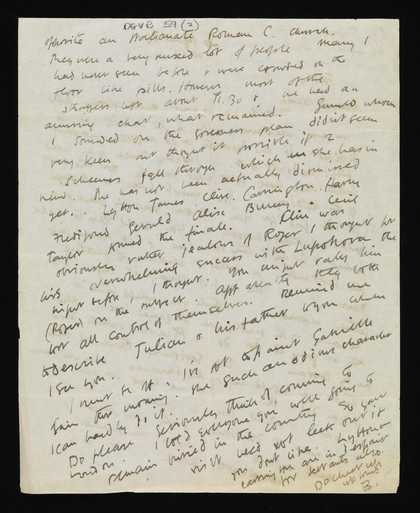 DGVB 59 (2)
opposite an Italianate Roman C. church.
They were a very mixed lot of people many I
had never seen before & were crowded on the
floor like pills. However most of the
strangers left about 11.30 & we had an
amusing chat, what remained.
I sounded on the governess plan didn't seem
very keen but thought it possible if 2
schemes fell through which she has in
view. She has not been actually dismissed
yet. Lytton James Clive Carrington Harry
Gerald Alix Bunny Cecil
Taylor formed the finale. Clive was
obviously rather jealous of Roger I thought for
his overwhelming success with Lopokova the
night before, I thought. You might rally him
(Roger) on the subject. Apparently they both
lost all control of themselves. Remind me
to describe Julian & his father to you when
I see you.
I must be off. I've got to paint Gabrielle
again this morning. She's such an odious character
I can hardly do it.
Do please seriously think of coming to
London. I told everyone you were going to
remain buried in the country so your
visit need not leak out if
you don't like. Lytton &
Carrington are in despair
for servants also.
Do cheer up
B.